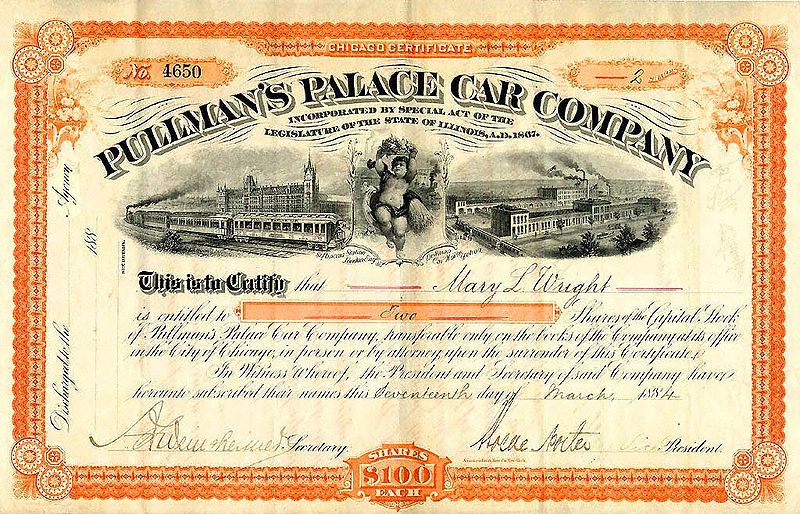 CHICAGO CERTIFICATE
No. 4650
2
PULLMAN'S PALACE CAR COMPANY
INCORPORATED BY SPECIAL ACT OF THE
LEGISLATURE OF THE STATE OF ILLINOIS, A.D. 1867.
Agency
188
Discharged to the
This is to Certify that Mary L. Wright
is entitled to Two Shares of the Capital Stock
of Pullman's Palace Car Company, transferable only on the books of the Company at its office
in the City of Chicago, in person or by attorney, upon the surrender of this Certificate.
In Witness Whereof, the President and Secretary of said Company have
hereunto subscribed their names this Seventeenth day of March, 1884
Secretary.
Vice President.
SHARES
$100
EACH